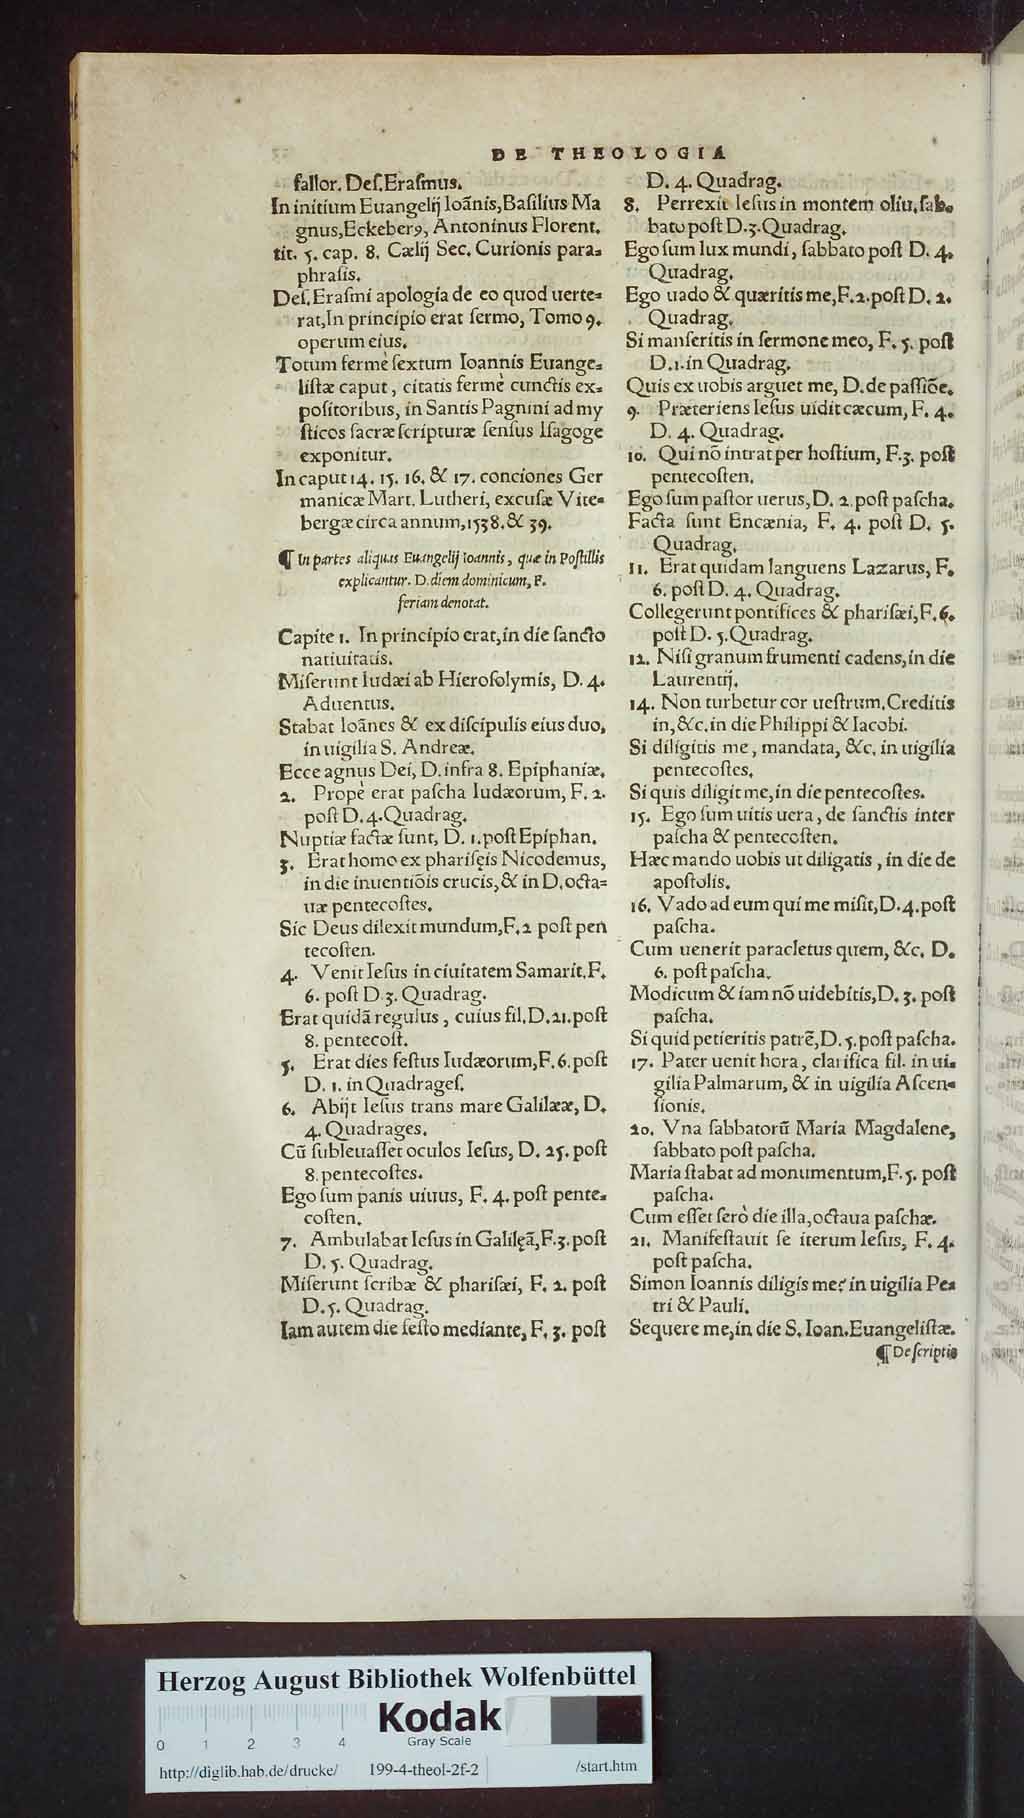 DE THEOLOGIA
fallor. Deſ. Eraſmus.
In initium Euangelij Ioãnis, Baſilius Ma
gnus, Eckeberꝰ, Antoninus Florent.
tit. 5. cap. 8. Cælij Sec. Curionis para⸗
phraſis.
Deſ. Eraſmi apologia de eo quod uerte⸗
rat, In principio erat ſermo, Tomo 9.
operum eius.
Totum fermè ſextum Ioannis Euange⸗
liſtæ caput, citatis fermè cunctis ex⸗
poſitoribus, in Santis Pagnini ad my
ſticos ſacræ ſcripturæ ſenſus Iſagoge
exponitur.
In caput 14. 15. 16. & 17. conciones Ger
manicæ Mart. Lutheri, excuſæ Vite⸗
bergæ circa annum, 1538. & 39.
¶ In partes aliquas Euangelij Ioannis, quæ in Poſtillis
explicantur. D. diem dominicum, F.
feriam denotat.
Capite 1. In principio erat, in die ſancto
natiuitatis.
Miſerunt Iudæi ab Hieroſolymis, D. 4.
Aduentus.
Stabat Ioãnes & ex diſcipulis eius duo,
in uigilia S. Andreæ.
Ecce agnus Dei, D. infra 8. Epiphaniæ.
2. Propè erat paſcha Iudæorum, F. 2.
poſt D. 4. Quadrag.
Nuptiæ factæ ſunt, D. 1. poſt Epiphan.
3. Erat homo ex phariſęis Nicodemus,
in die inuentiõis crucis, & in D. octa⸗
uæ pentecoſtes.
Sic Deus dilexit mundum, F. 2 poſt pen
tecoſten.
4. Venit Ieſus in ciuitatem Samarit. F.
6. poſt D. 3. Quadrag.
Erat quidã regulus, cuius fil. D. 21. poſt
8. pentecoſt.
5. Erat dies feſtus Iudæorum, F. 6. poſt
D. 1. in Quadrageſ.
6. Abijt Ieſus trans mare Galilææ, D.
4. Quadrages.
Cũ ſubleuaſſet oculos Ieſus, D. 25. poſt
8. pentecoſtes.
Ego ſum panis uiuus, F. 4. poſt pente⸗
coſten.
7. Ambulabat Ieſus in Galilęã, F. 3. poſt
D. 5. Quadrag.
Miſerunt ſcribæ & phariſæi, F. 2. poſt
D. 5. Quadrag.
Iam autem die feſto mediante, F. 3. poſt
D. 4. Quadrag.
8. Perrexit Ieſus in montem oliu. ſab⸗
bato poſt D. 3. Quadrag.
Ego ſum lux mundi, ſabbato poſt D. 4.
Quadrag.
Ego uado & quæritis me, F. 2. poſt D. 2.
Quadrag.
Si manſeritis in ſermone meo, F. 5. poſt
D. 1. in Quadrag.
Quis ex uobis arguet me, D. de paſſiõe.
9. Præteriens Ieſus uidit cæcum, F. 4.
D. 4. Quadrag.
10. Qui nõ intrat per hoſtium, F. 3. poſt
pentecoſten.
Ego ſum paſtor uerus, D. 2. poſt paſcha.
Facta ſunt Encænia, F. 4. poſt D. 5.
Quadrag.
11. Erat quidam languens Lazarus, F.
6. poſt D. 4. Quadrag.
Collegerunt pontifices & phariſæi, F. 6.
poſt D. 5. Quadrag.
12. Niſi granum frumenti cadens, in die
Laurentij.
14. Non turbetur cor ueſtrum. Creditis
in, &c. in die Philippi & Iacobi.
Si diligitis me, mandata, &c. in uigilia
pentecoſtes.
Si quis diligit me, in die pentecoſtes.
15. Ego ſum uitis uera, de ſanctis inter
paſcha & pentecoſten.
Hæc mando uobis ut diligatis, in die de
apoſtolis.
16. Vado ad eum qui me miſit, D. 4. poſt
paſcha.
Cum uenerit paracletus quem, &c. D.
6. poſt paſcha.
Modicum & iam nõ uidebitis, D. 3. poſt
paſcha.
Si quid petieritis patrẽ, D. 5. poſt paſcha.
17. Pater uenit hora, clarifica fil. in ui⸗
gilia Palmarum, & in uigilia Aſcen⸗
ſionis.
20. Vna ſabbatorũ Maria Magdalene,
ſabbato poſt paſcha.
Maria ſtabat ad monumentum, F. 5. poſt
paſcha.
Cum eſſet ſerò die illa, octaua paſchæ.
21. Manifeſtauit ſe iterum Ieſus, F. 4.
poſt paſcha.
Simon Ioannis diligis me? in uigilia Pe⸗
tri & Pauli.
Sequere me, in die S. Ioan. Euangeliſtæ.
¶ Deſcriptio
Herzog August Bibliothek Wolfenbüttel
Kodak
Gray Scale
0 1 2 3 4
http://diglib.hab.de/drucke/ 199-4-theol-2f-2 /start.htm